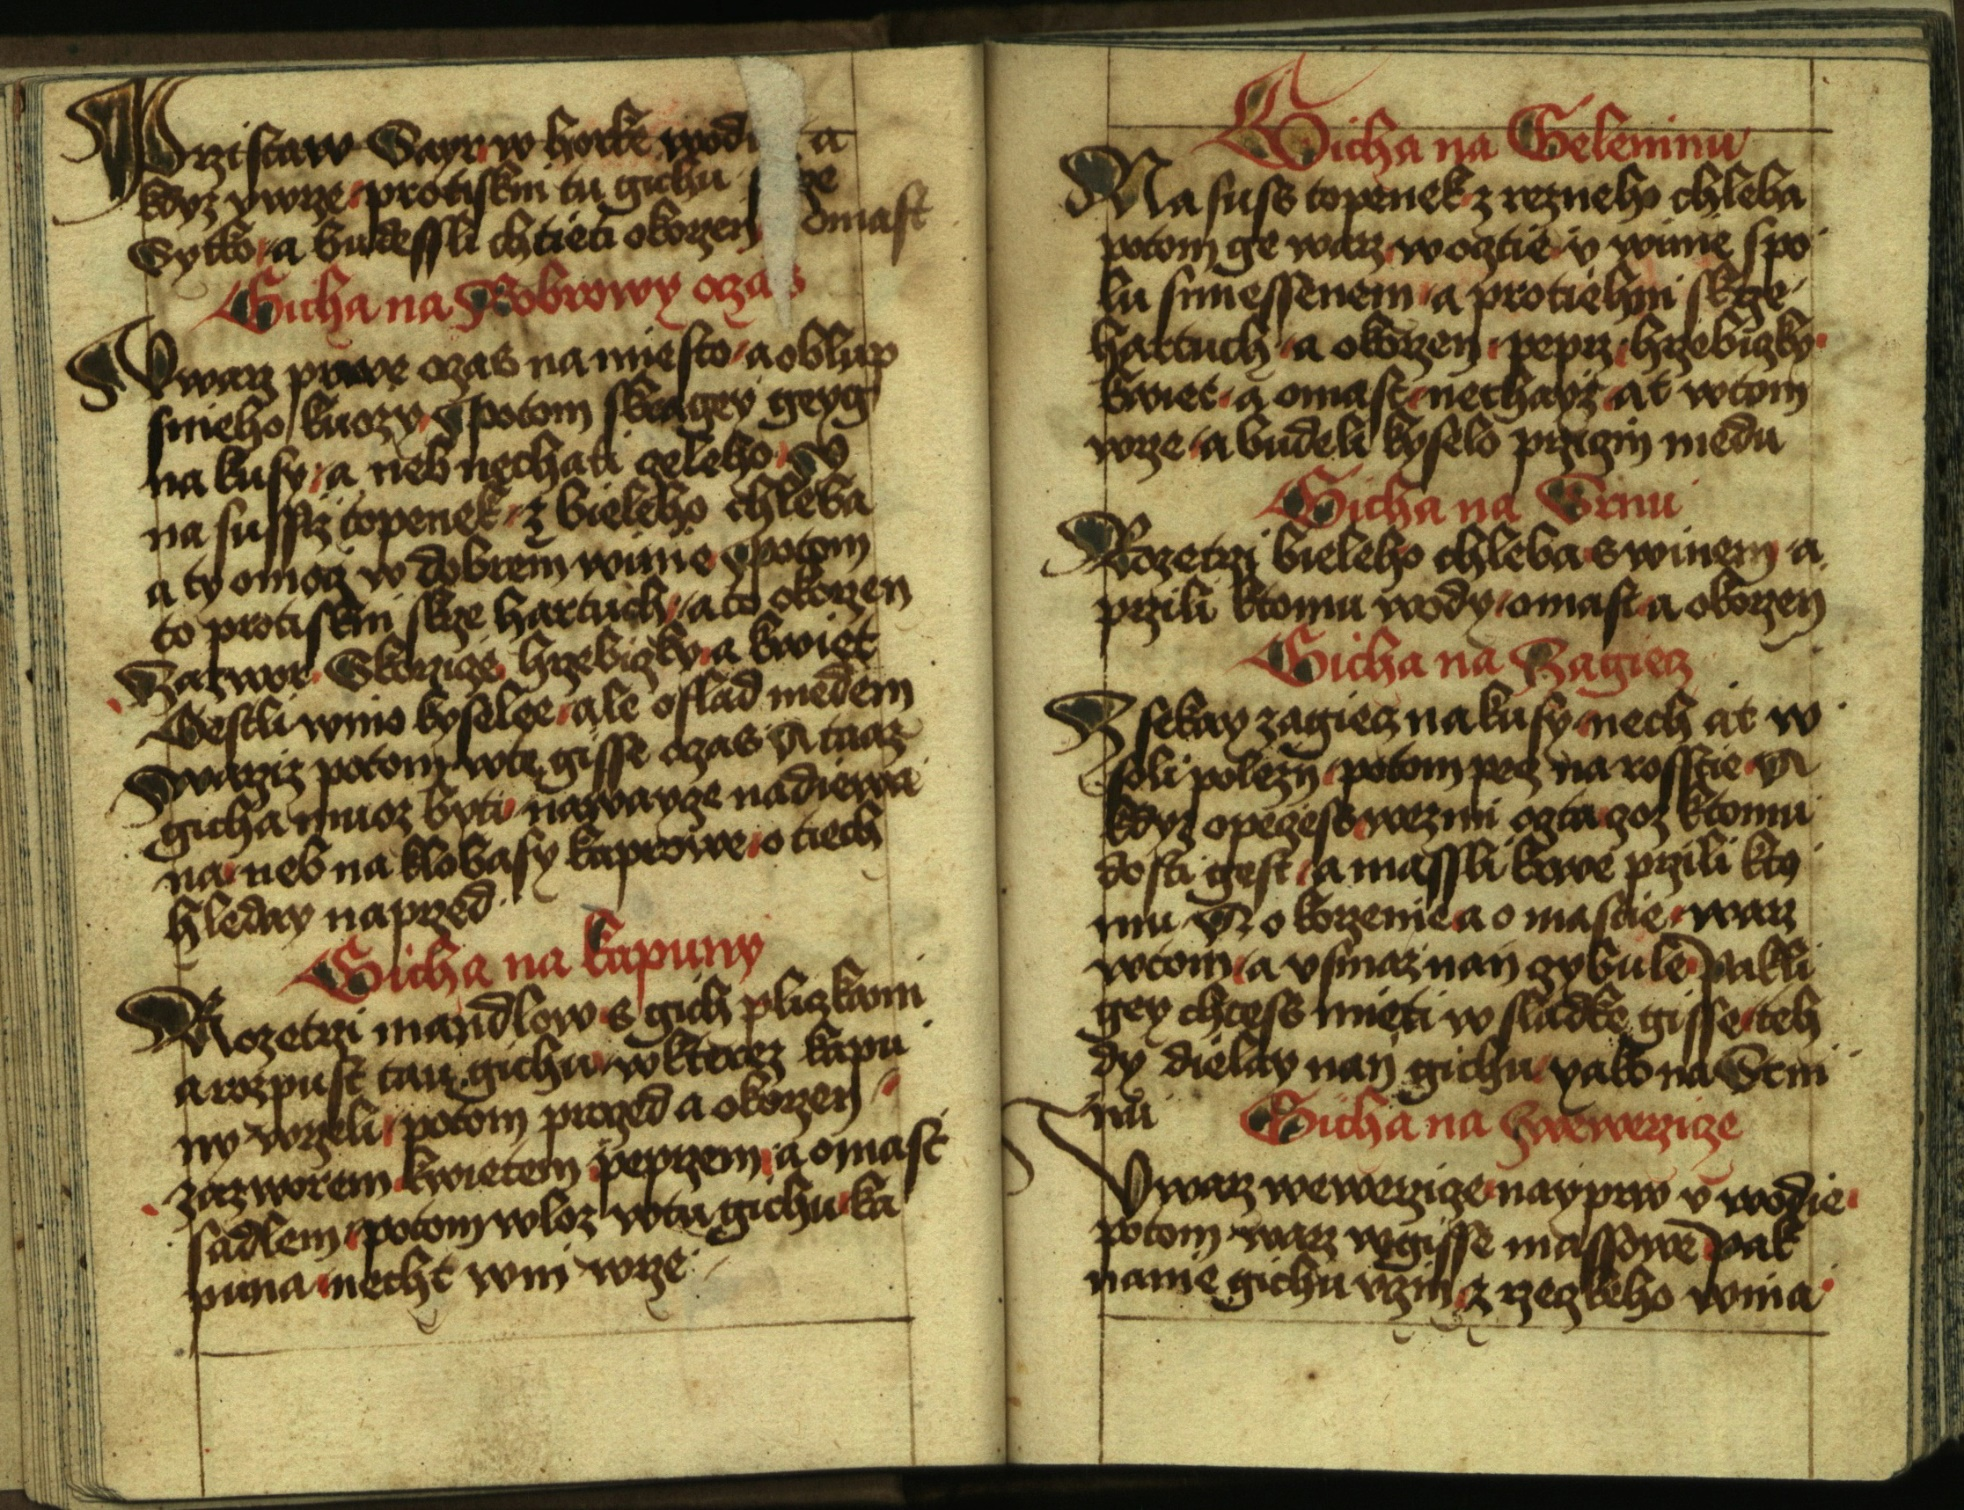 Przistaw Sayr w horke wodi a
kdyz ywrze protiskni tu gichu
Sytko a budessli chtieti okorzen omast
Gicha na Bobrowy oczas
Vwarz prwe oczas na miesto a oblup
snieho kuozy potom skragey geyg
na kusy a neb nechati celeho
na sussiz topenek z bieleho chleba
a ty omocz w dobrem winie potom
to protiskni skrze hartuch a to okorzen
Zazwor Skorzice hrzebiczky a kwiet
Gestli wino kyselee ale oslad medem
Swarziz potom wte gisse oczas A taaz
gicha muoz byti na wayce nadiewa
na neb na klobasy kaprowe o tiech
hleday naprzed
Gicha na kapuny
Rozetrzi mandlow s gich pliczkami
a rozpust tau gichu w kterez kapu
ny wrzeli potom proczed a okorzen
zazworem kwietem peprzem a omast
sadlem potom wloz wtu gichu ka
puna necht wni wrze
Gicha na Geleninu
Na suss topenek z rezneho chleba
potom ge warz woctie y winie spo
lu smiessenem a protiehni skrze
hartuch a okorzen peprz hrzebiczky
kwiet a omast nechayz at wtom
wrze a budeli kyselo przicziń medu
Gicha na Srnu
Rozetrzi bieleho chleba s winem a
przili ktomu wody omast a okorzen
Gicha na Zagiecz
Zsekay zagiecz na kusy nech at w
soli polezy potom pecz na rosstie A
kdyz opeczess wezmi octa coz ktomu
dosti gest a massli krwe przili kto
mu A o korzenie a o mastie warz
wtom a vsmaz nan cybule Pakli
gey chcess mieti w sladke gisse teh
dy dielay nan gichu yako na Srni
nu
Gicha na Wewerzice
Vwarz wewerzice nayprw v wodie
potom warz wgisse massowe pak
nanie gichu vczin z rzeczkeho wina